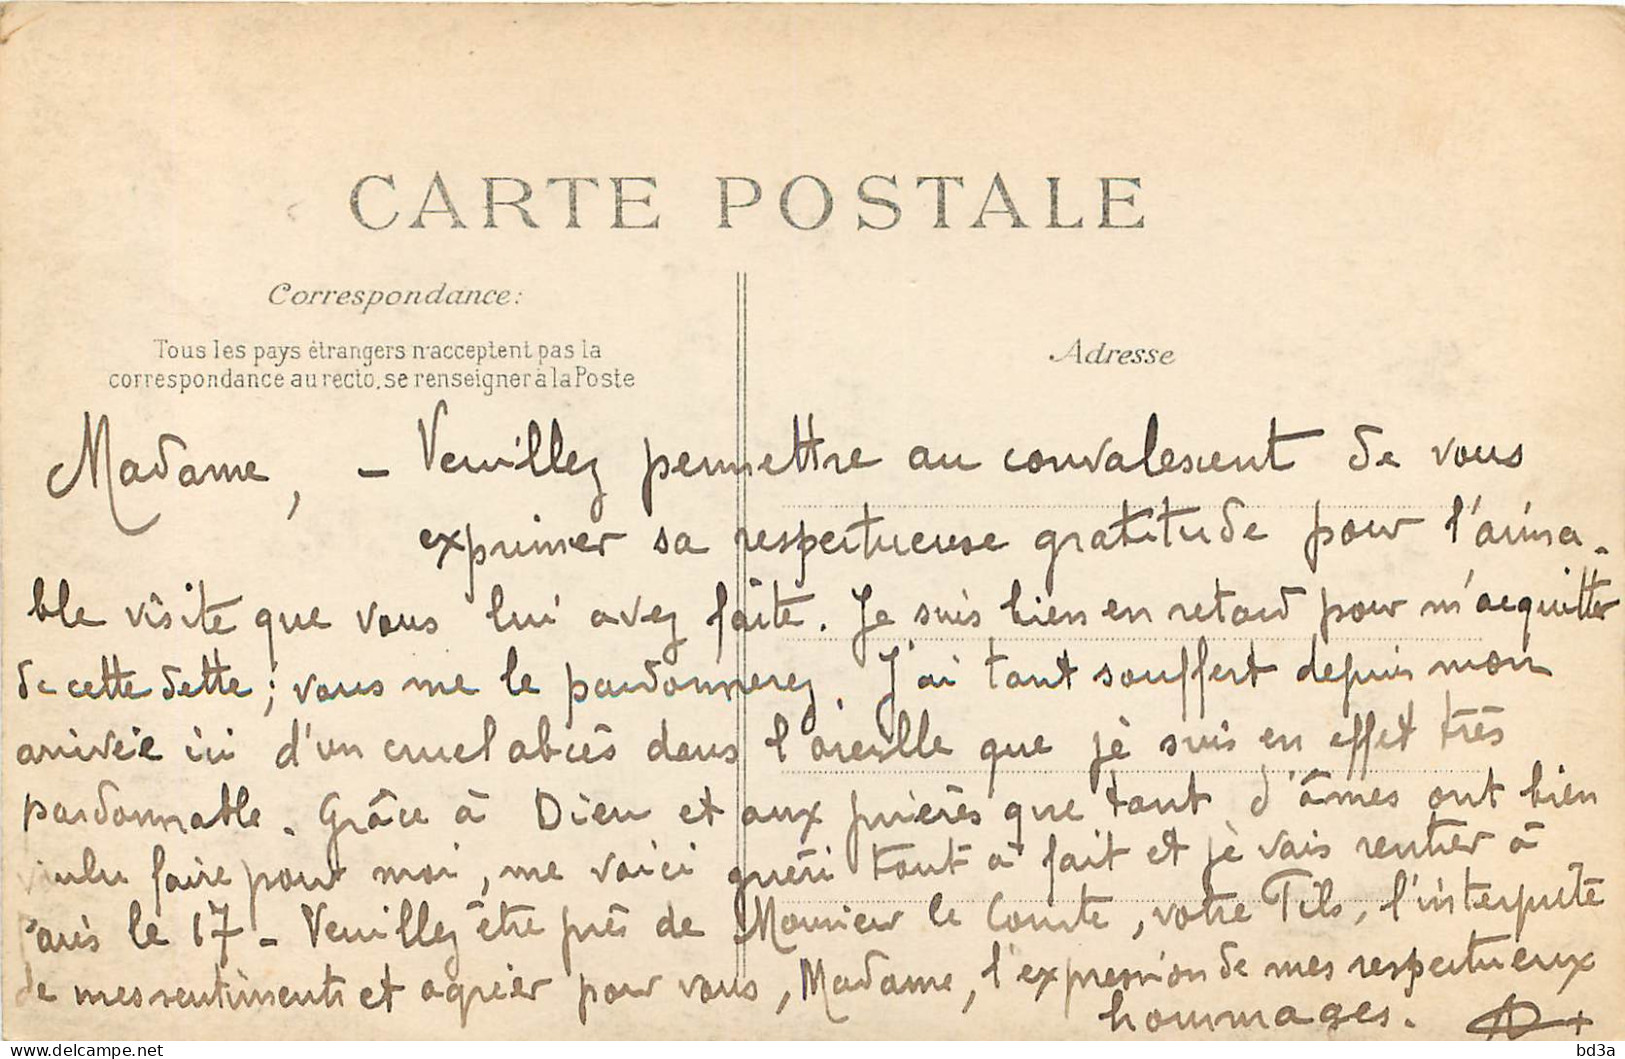 CARTE POSTALE
Correspondance:
Tous les pays étrangers n'acceptent pas la
correspondance au recto, se renseigner à la Poste
Adresse
Madame, – Veuillez permettre au convalescent de vous
exprimer sa respectueuse gratitude pour l'aima-
ble visite que vous lui avez faite. Je suis bien en retard pour m'acquitter
de cette dette ; vous me le pardonnerez. J'ai tant souffert depuis mon
arrivée ici d'un cruel abcès dans l'oreille que je suis en effet très
pardonnable. Grâce à Dieu et aux prières que tant d'âmes ont bien
voulu faire pour moi, me voici guéri tout à fait et je vais rentrer à
Paris le 17 – Veuillez être près de Monsieur le Comte, votre Fils, l'interprète
de mes sentiments et agréer pour vous, Madame, l'expression de mes respectueux
hommages.
delcampe.net
bd3a